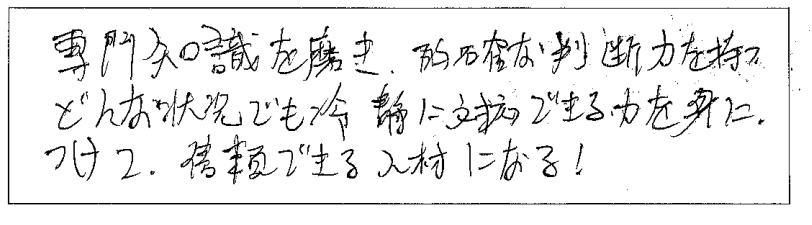 専門知識を磨き、的確な判断力を持って
どんな状況でも冷静に対応できる力を身に、
つけて、信頼できる人材になる!